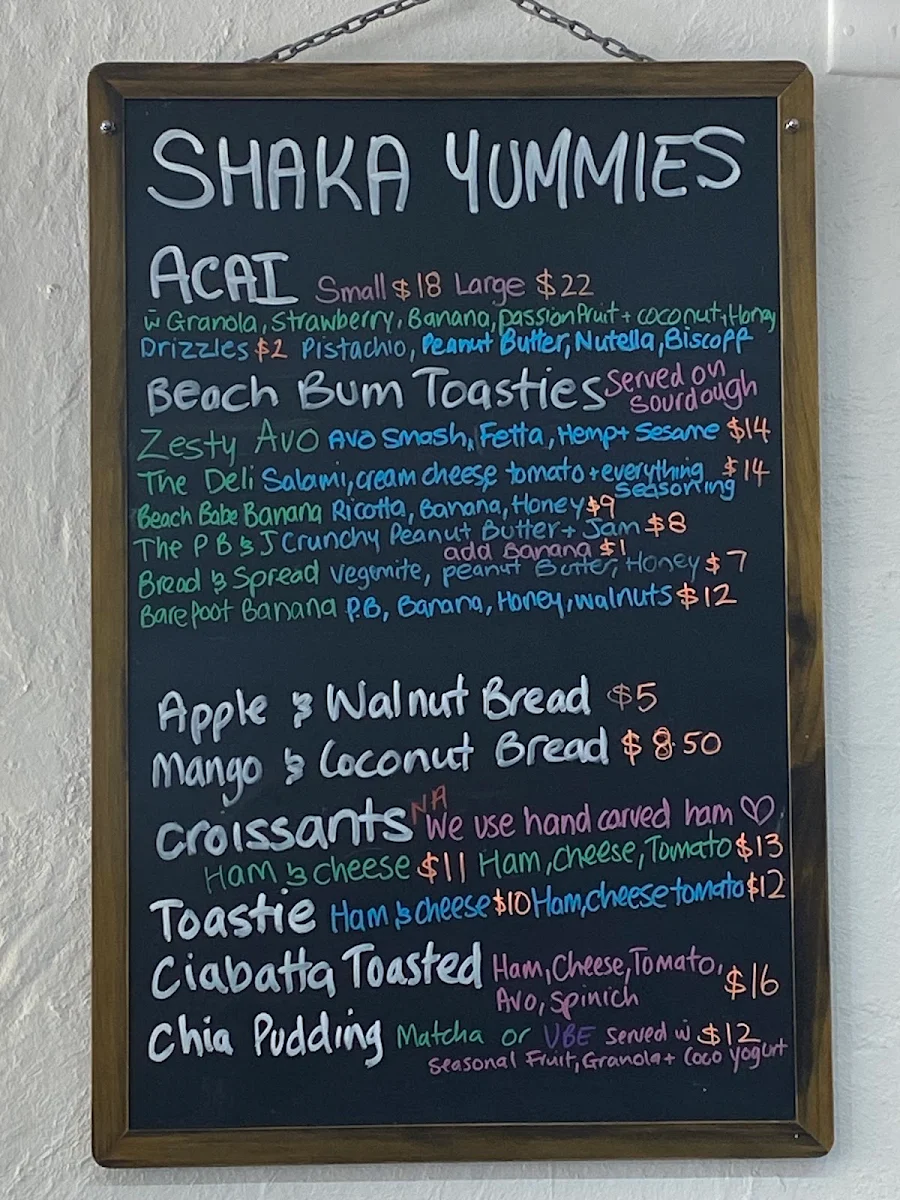 SHAKA YUMMIES
ACAI Small $18 Large $22
w Granola, Strawberry, Banana, passionfruit + coconut, Honey
Drizzles $2 Pistachio, Peanut Butter, Nutella, Biscoff
Beach Bum Toasties Served on
sourdough
Zesty Avo Avo Smash, Fetta, Hemp + Sesame $14
The Deli Salami, cream cheese tomato + everything $14
seasoning
Beach Babe Banana Ricotta, Banana, Honey $9
The PB & J Crunchy Peanut Butter + Jam $8
add Banana $1
Bread & Spread Vegemite, peanut Butter, Honey $7
Barefoot Banana P.B, Banana, Honey, walnuts $12
Apple & Walnut Bread $5
Mango & Coconut Bread $8.50
Croissants NA We use hand carved ham ♡
Ham & cheese $11 Ham, cheese, Tomato $13
Toastie Ham & cheese $10 Ham, cheese tomato $12
Ciabatta Toasted Ham, Cheese, Tomato,
Avo, Spinich $16
Chia Pudding Matcha or UBE served w $12
seasonal Fruit, Granola + Coco yogurt